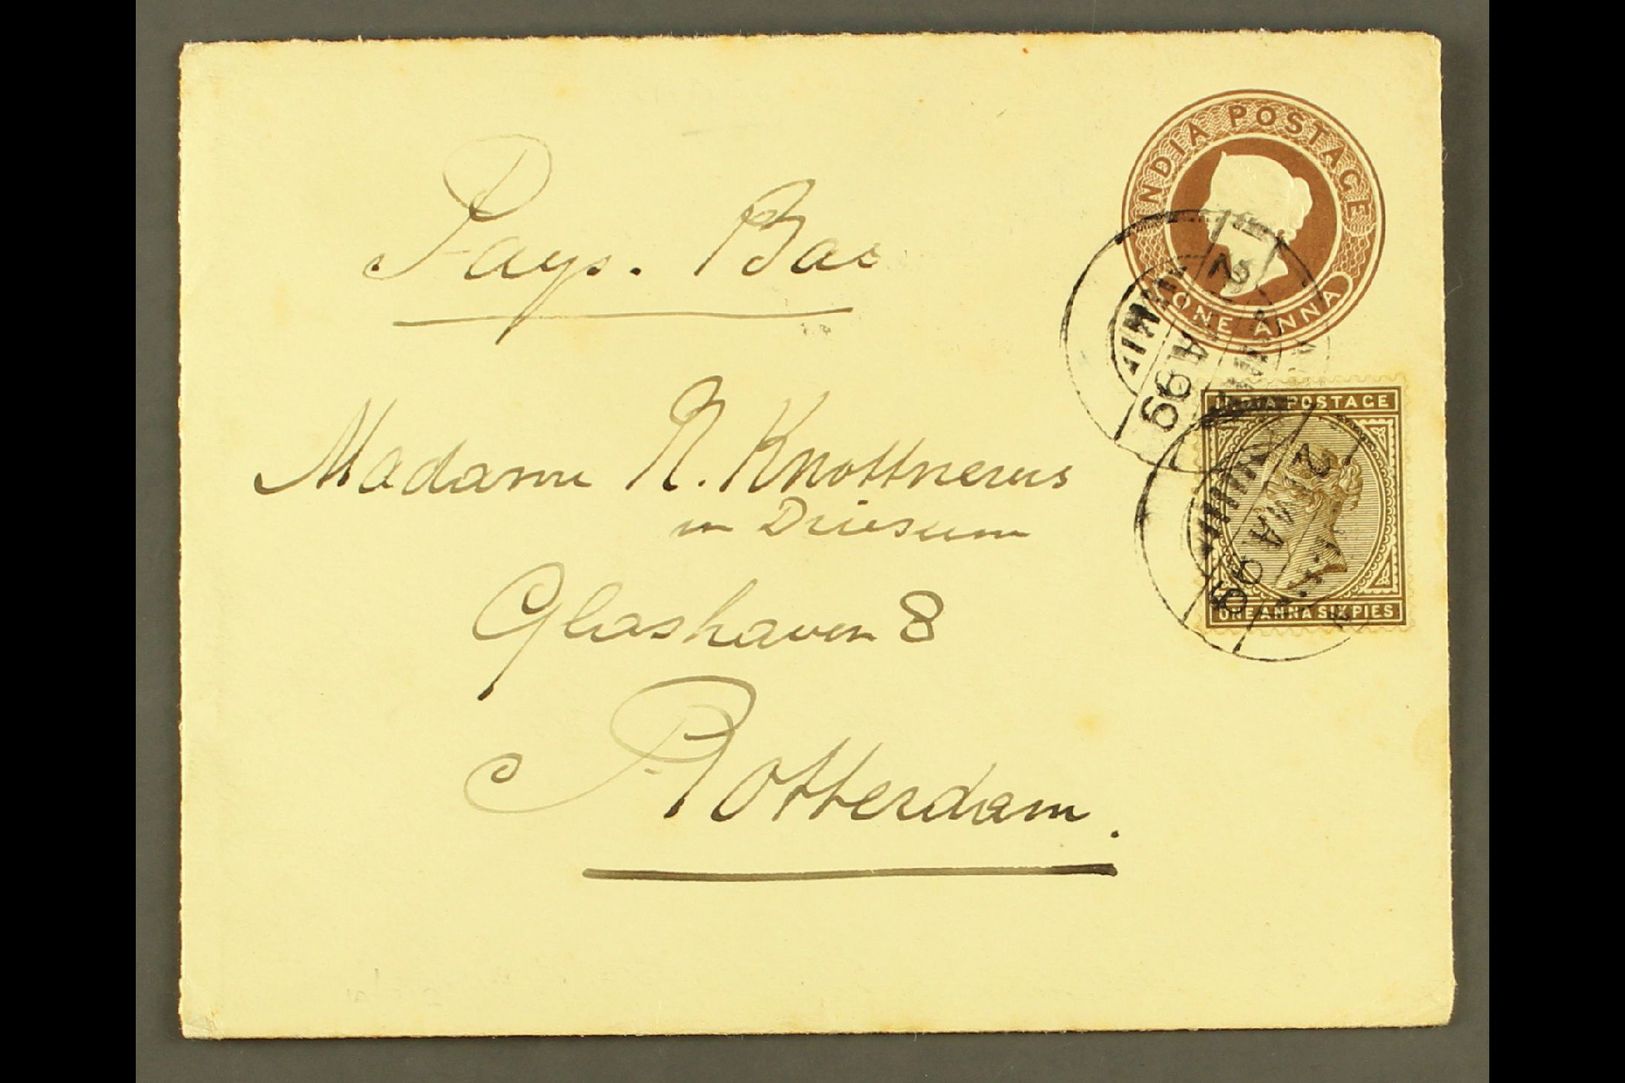 INDIA POSTAGE
ONE ANNA
Pays. Bas
2
A 99
INDIA POSTAGE
2 MA 99
ONE ANNA SIX PIES
Madame N. Knottnerus
Glashaven 8
Rotterdam.